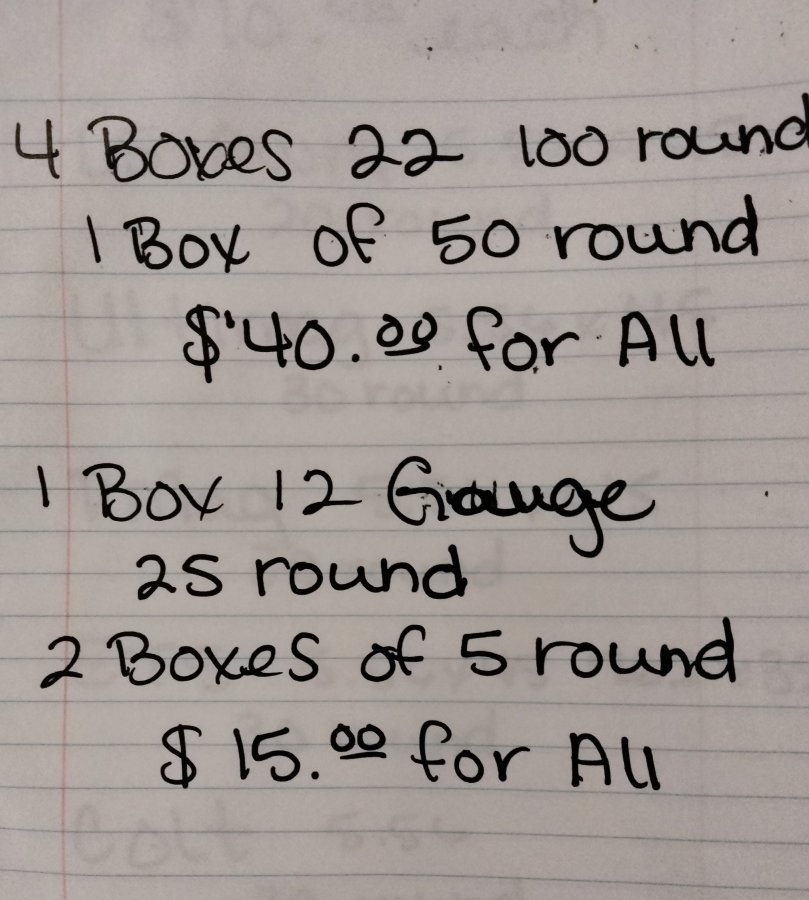 4 Boxes 22 100 round
1 Box of 50 round
$40.00 for All
1 Box 12 Gauge
25 round
2 Boxes of 5 round
$15.00 for All
Colt 5.56